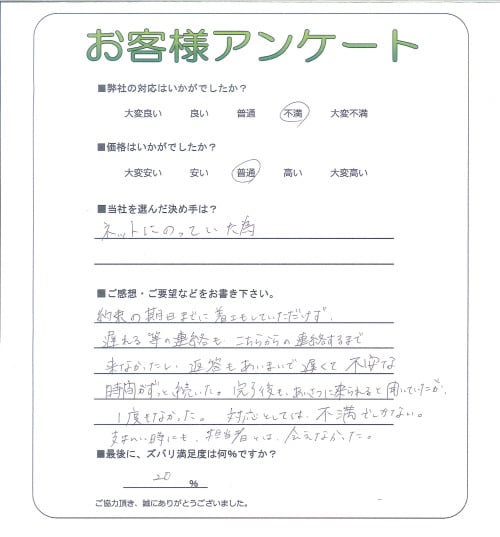 お客様アンケート
■弊社の対応はいかがでしたか？
大変良い 良い 普通 不満 大変不満
■価格はいかがでしたか？
大変安い 安い 普通 高い 大変高い
■当社を選んだ決め手は？
ネットにのっていた為
■ご感想・ご要望などをお書き下さい。
約束の期日までに着工もしていただけず、
遅れる等の連絡も、こちらからの連絡するまで
来なかったし、返答もあいまいで遅くて不安な
時間がずっと続いた。完了後も、あいさつに来られると聞いていたが、
1度もなかった。対応としては、不満でしかない。
支払い時にも、担当者とは、会えなかった。
■最後に、ズバリ満足度は何%ですか？
20 %
ご協力頂き、誠にありがとうございました。